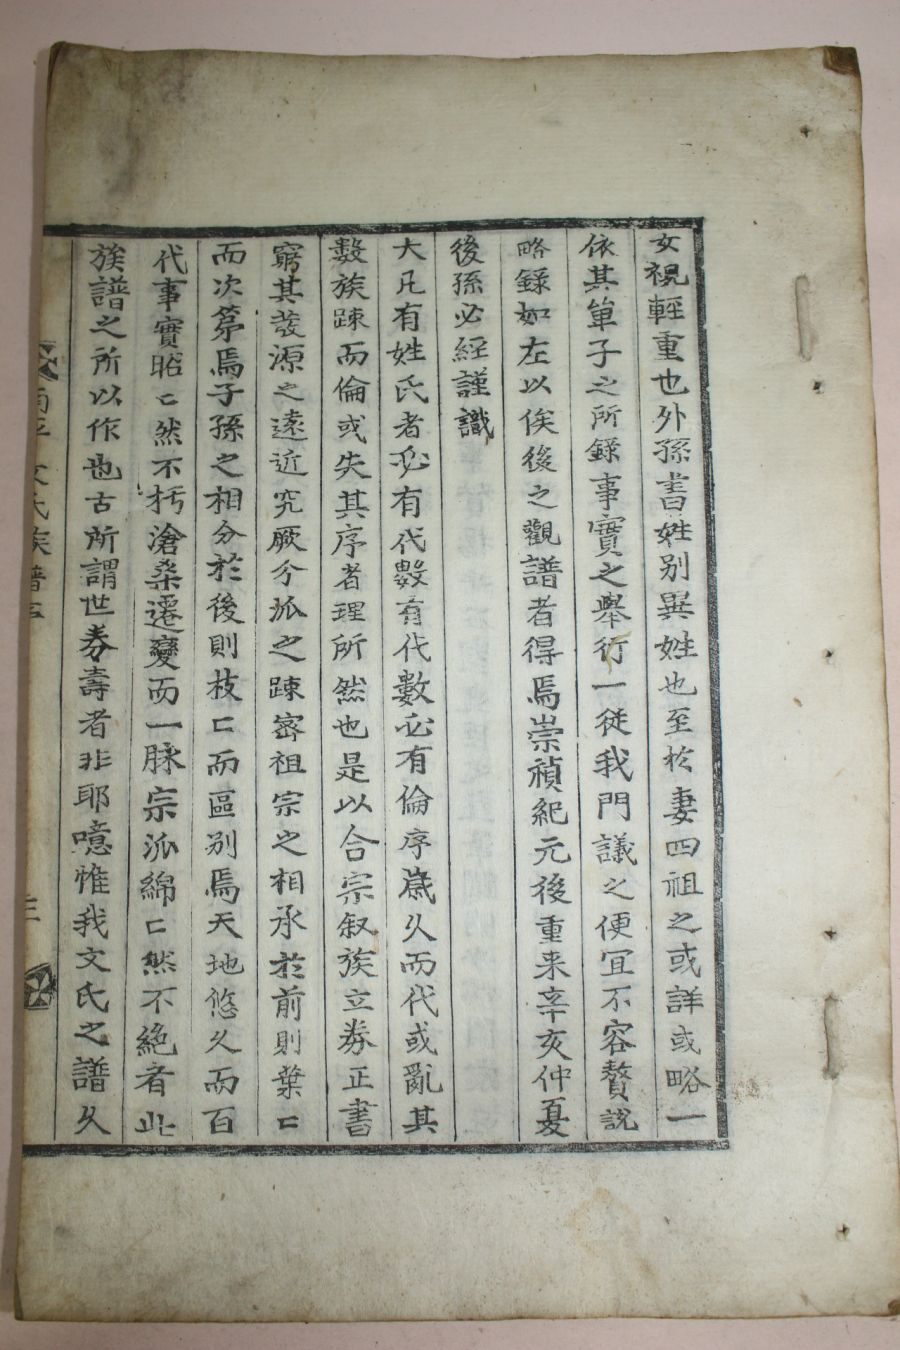 女視輕重也外孫書姓別異姓也至於妻四祖之或詳或略一
依其單子之所錄事實之舉行一從我門議之便宜不容贅說
略錄如左以俟後之觀譜者得焉崇禎紀元後重来辛亥仲夏
後孫必經謹識
大凡有姓氏者必有代數有代數必有倫序歲久而代或亂其
數族踈而倫或失其序者理所然也是以合宗叙族立券正書
窮其發源之遠近究厥分派之踈密祖宗之相承於前則葉〻
而次第焉子孫之相分於後則枝〻而區別焉天地悠久而百
代事實昭〻然不朽滄桑遷變而一脉宗派綿〻然不絶者此
族譜之所以作也古所謂世券壽者非耶噫惟我文氏之譜久
南平文氏族譜序
三